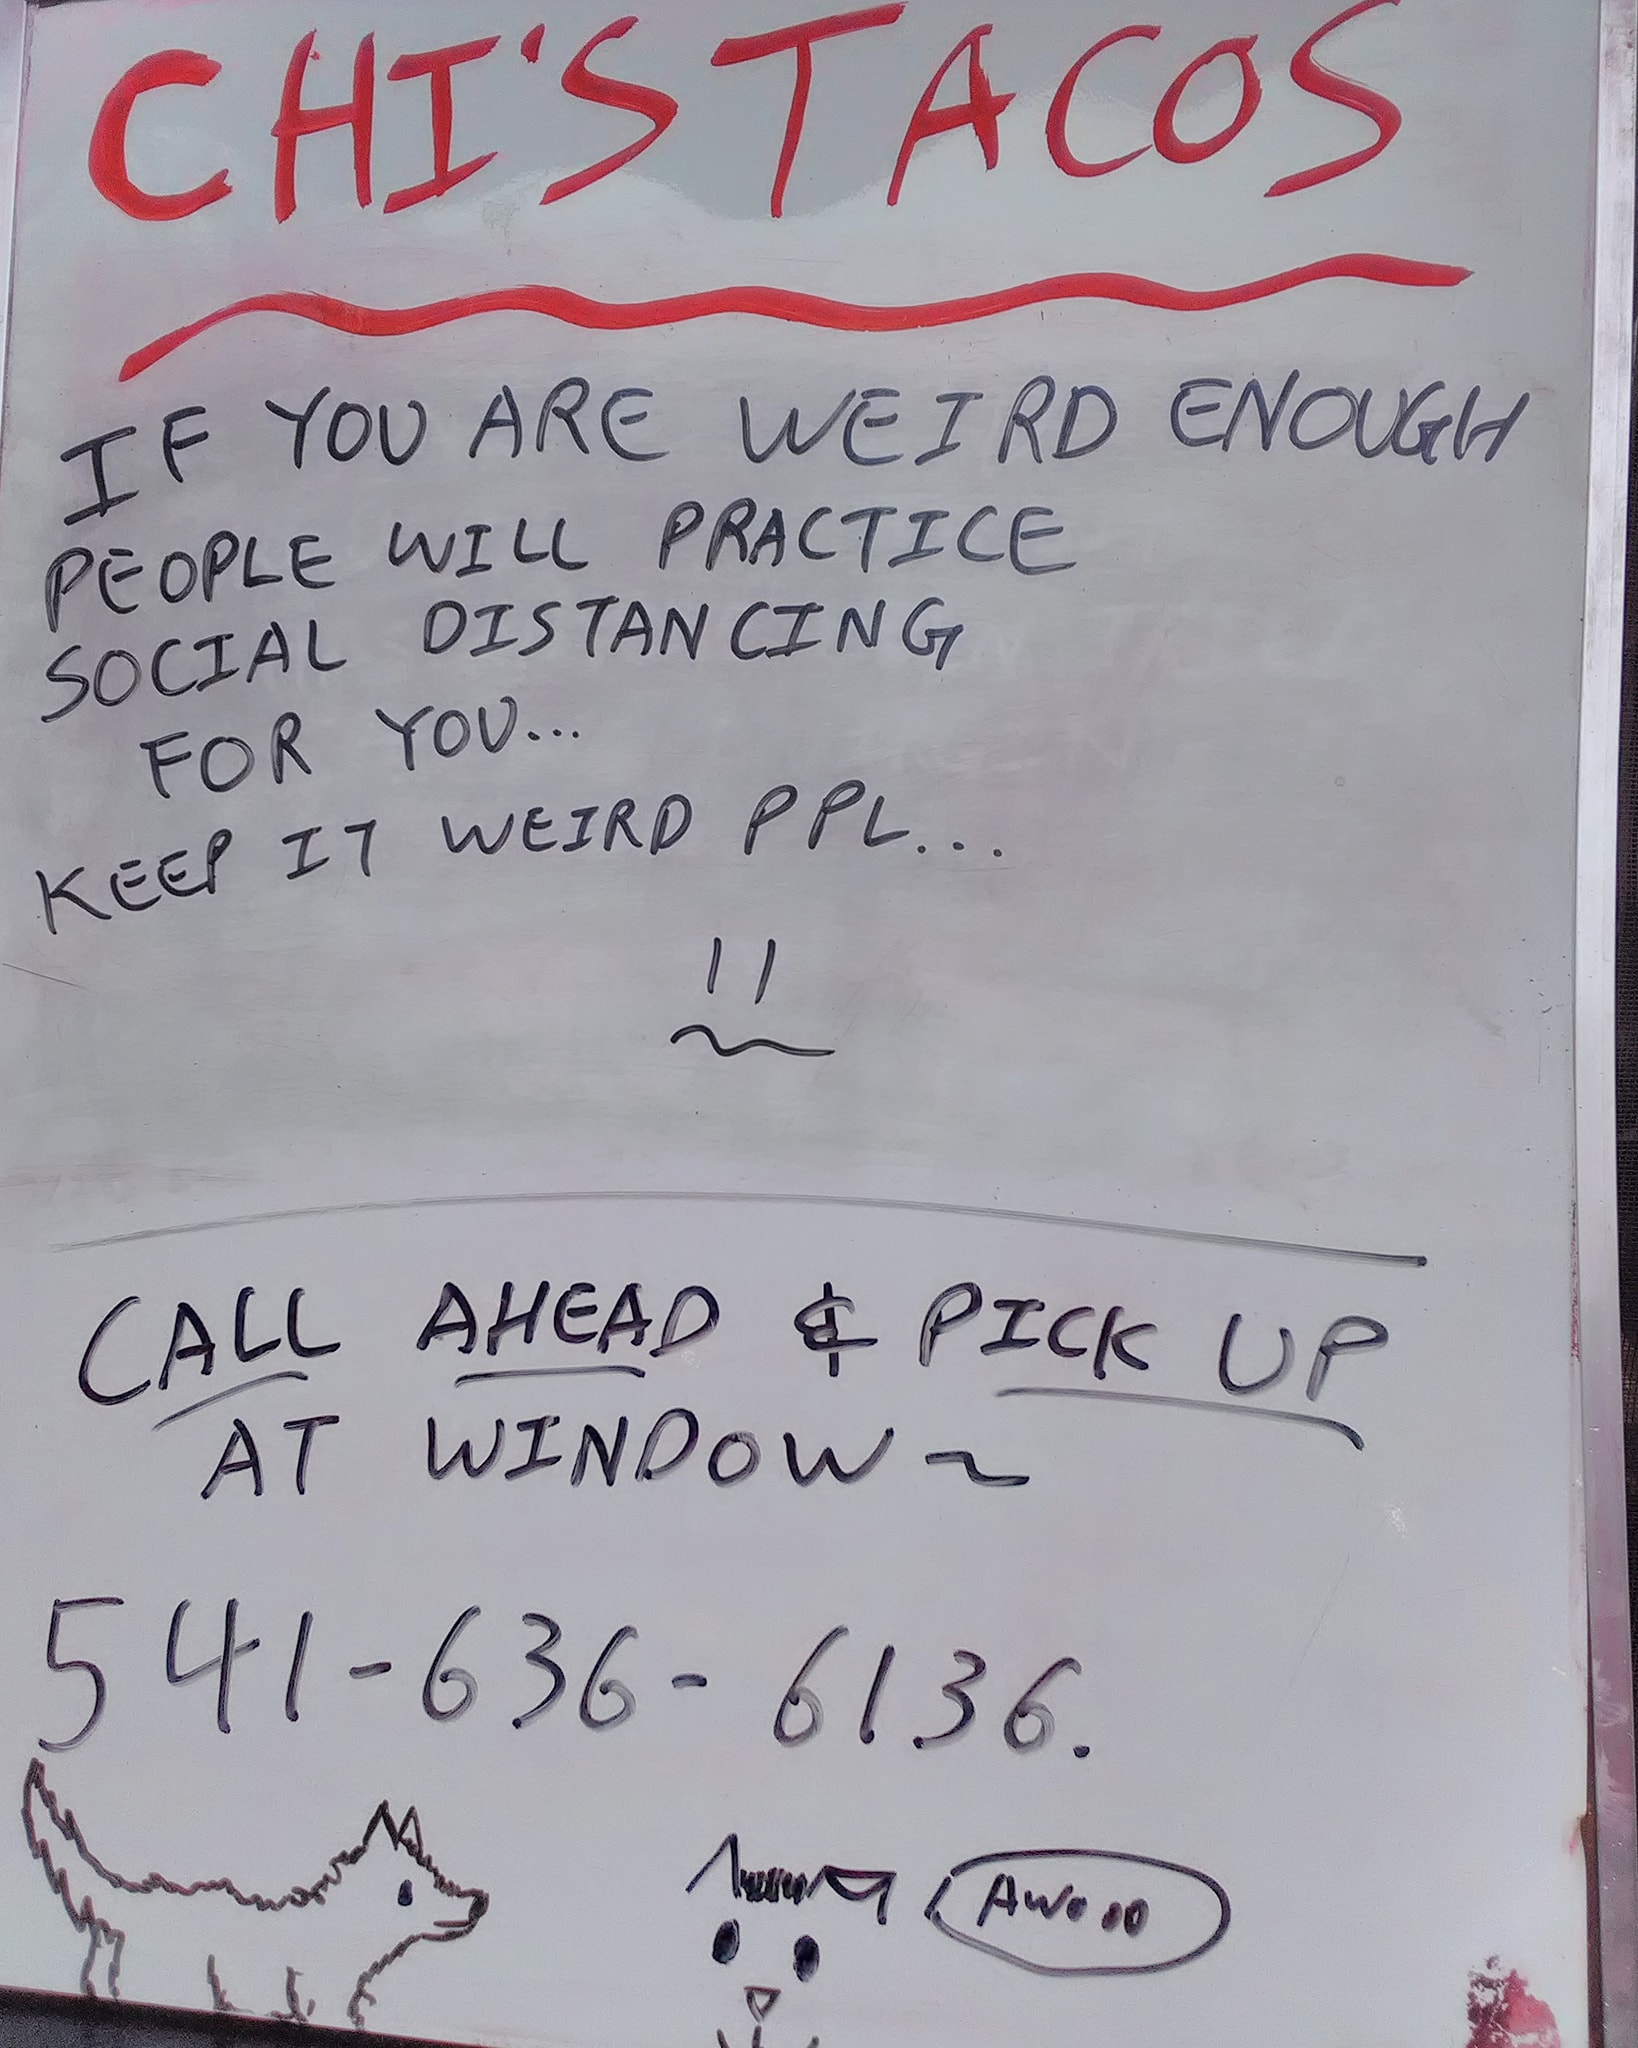 CHI'S TACOS
IF YOU ARE WEIRD ENOUGH
PEOPLE WILL PRACTICE
SOCIAL DISTANCING
FOR YOU...
KEEP IT WEIRD PPL...
CALL AHEAD & PICK UP
AT WINDOW~
541-636-6136.
AWOOO